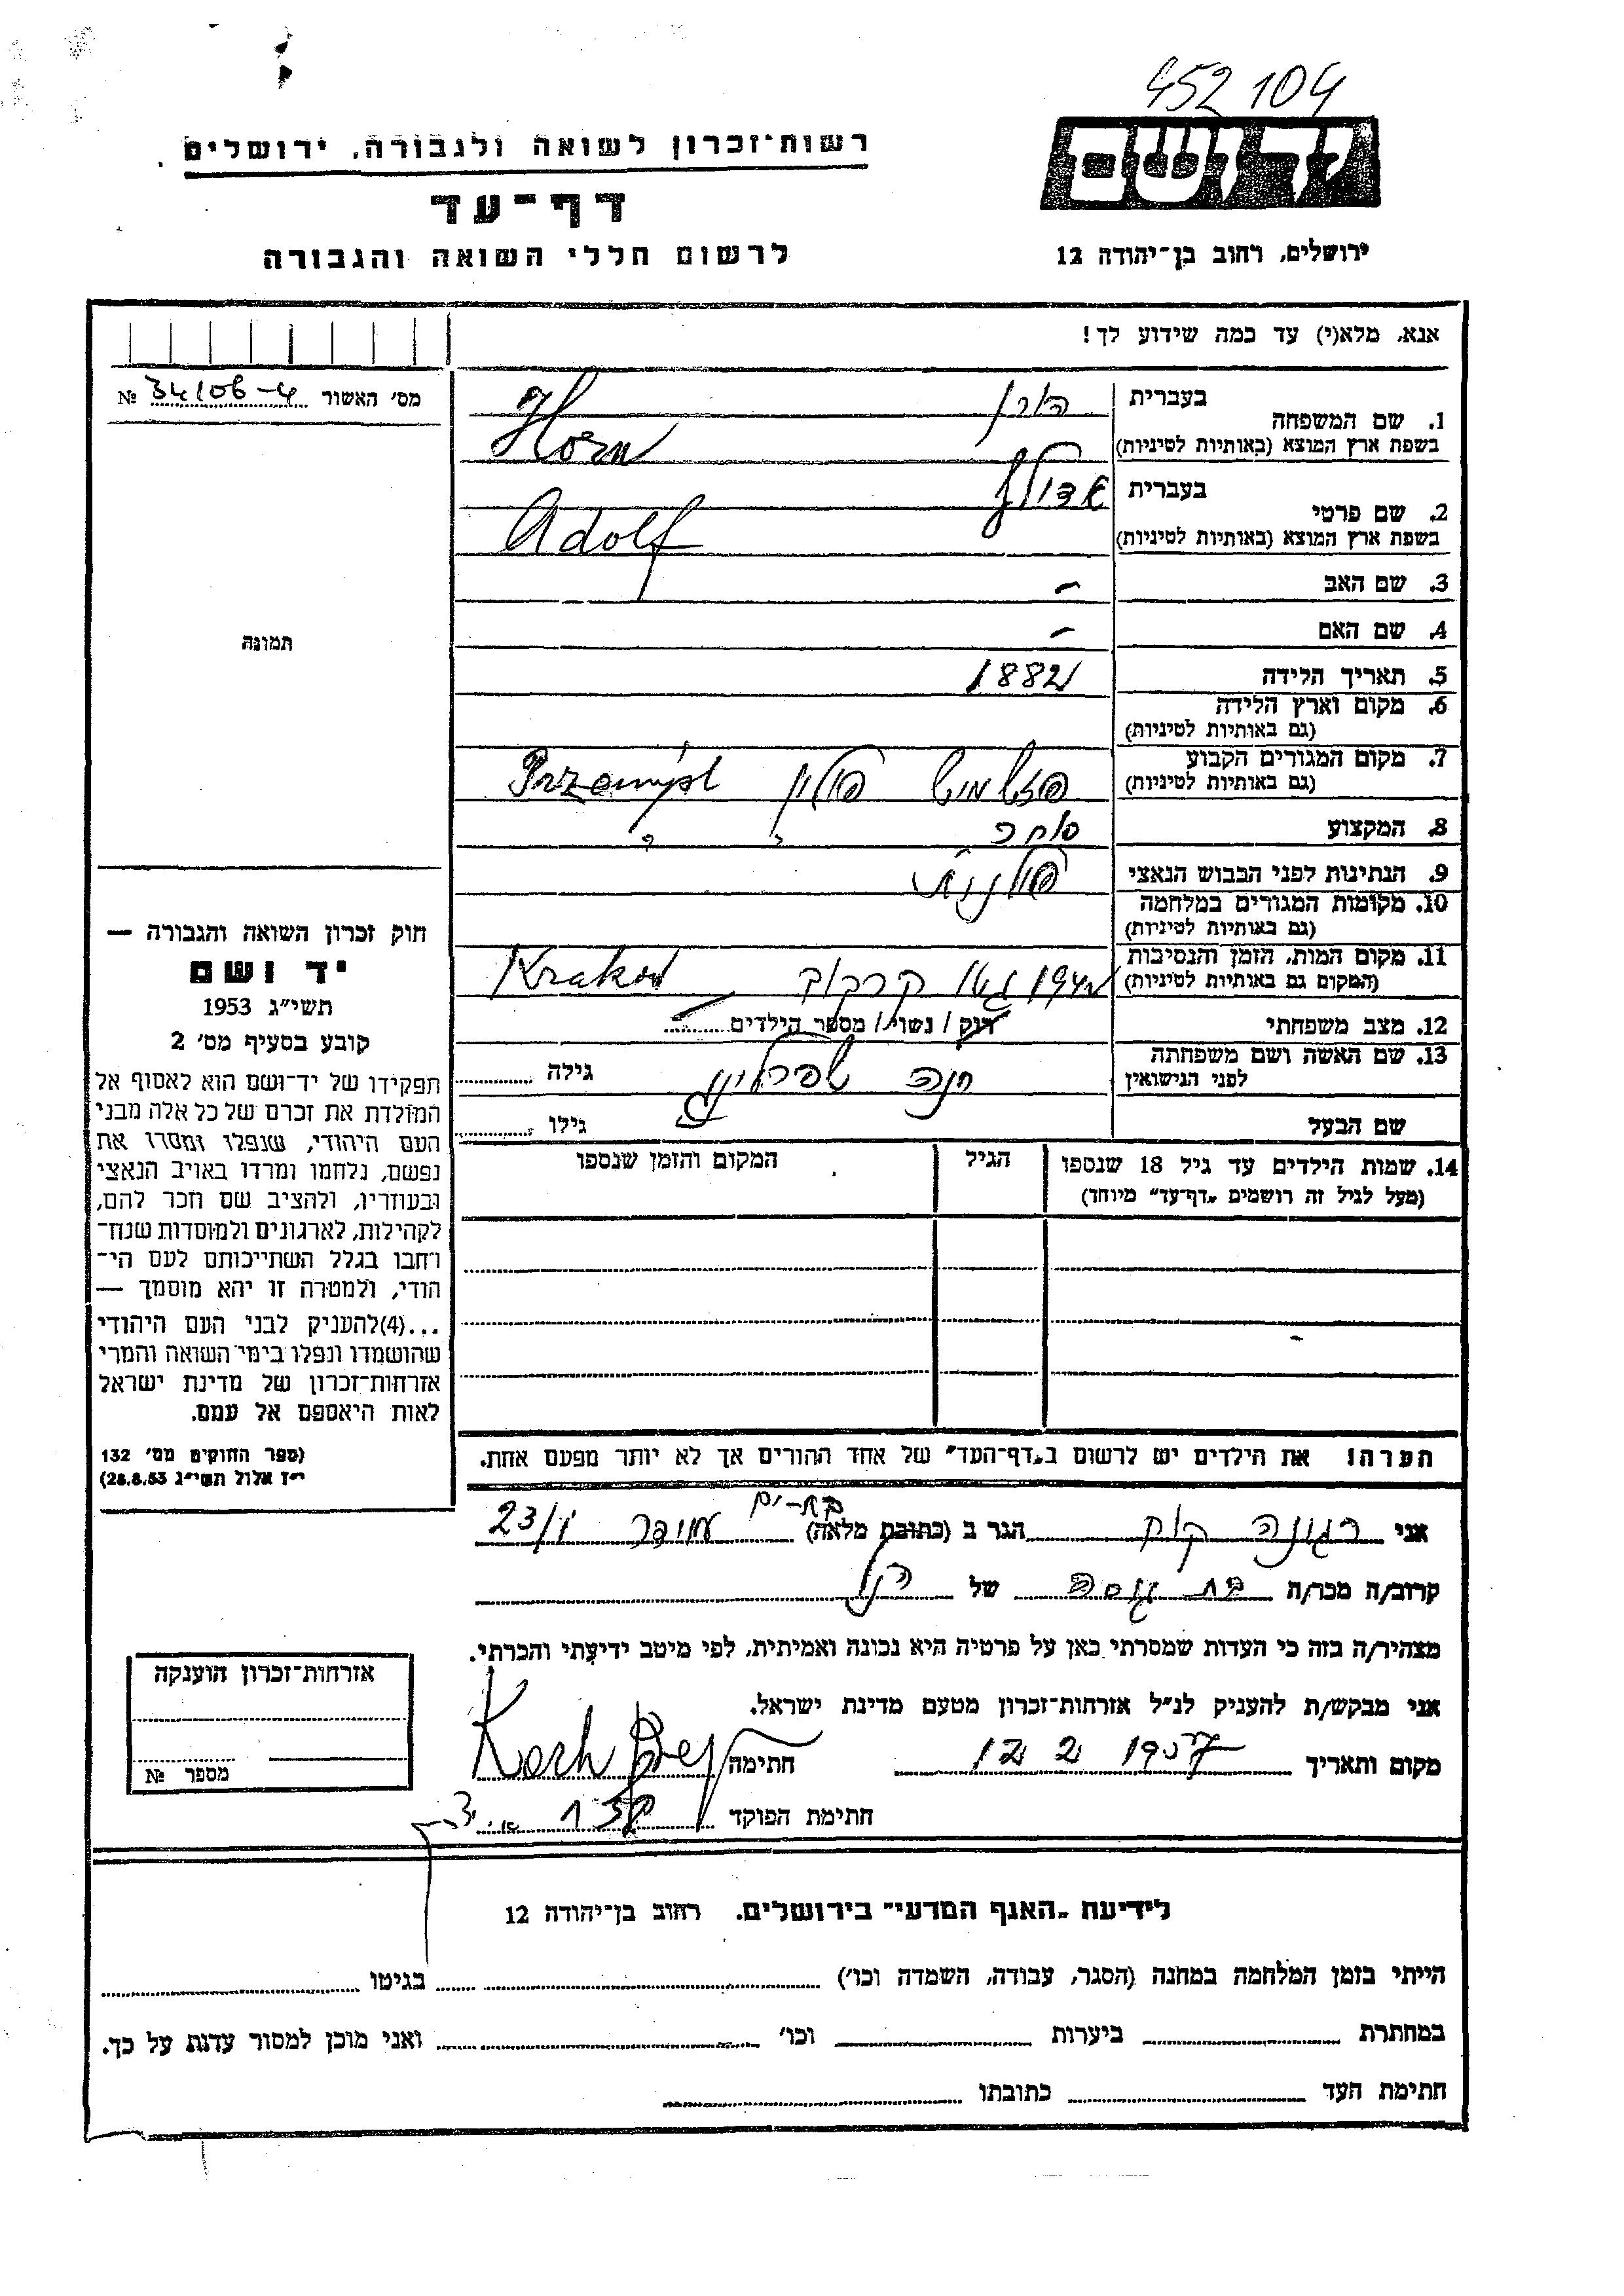 452104
יד ושם
רשות־זכרון לשואה ולגבורה, ירושלים
דף־עד
לרשום חללי השואה והגבורה
ירושלים, רחוב בן־יהודה 12
אנא, מלא(י) עד כמה שידוע לך!
מס׳ האשור 34106-4 №
1. שם המשפחה
בעברית הורן
בשפת ארץ המוצא (באותיות לטיניות) Horn
2. שם פרטי
בעברית אדולף
בשפת ארץ המוצא (באותיות לטיניות) Adolf
3. שם האב –
4. שם האם –
5. תאריך הלידה 1882
6. מקום וארץ הלידה
(גם באותיות לטיניות)
7. מקום המגורים הקבוע
(גם באותיות לטיניות) פשמישל פולין Przemyśl
8. המקצוע סוחר " "
9. הנתינות לפני הכבוש הנאצי פולנית
10. מקומות המגורים במלחמה
(גם באותיות לטיניות)
11. מקום המות, הזמן והנסיבות
(המקום גם באותיות לטיניות) 1942 גטו קרקוב Krakow
12. מצב משפחתי רוק / נשוי / מספר הילדים
13. שם האשה ושם משפחתה
לפני הנישואין חנה שפרלינג גילה
שם הבעל גילו
14. שמות הילדים עד גיל 18 שנספו
(מעל לגיל זה רושמים „דף־עד” מיוחד)
הגיל
המקום והזמן שנספו
הערה! את הילדים יש לרשום ב„דף־העד” של אחד ההורים אך לא יותר מפעם אחת.
תמונה
חוק זכרון השואה והגבורה —
יד ושם
תשי״ג 1953
קובע בסעיף מס׳ 2
תפקידו של יד־ושם הוא לאסוף אל
המולדת את זכרם של כל אלה מבני
העם היהודי, שנפלו ומסרו את
נפשם, נלחמו ומרדו באויב הנאצי
ובעוזריו, ולהציב שם וזכר להם,
לקהילות, לארגונים ולמוסדות שנח־
רבו בגלל השתייכותם לעם הי־
הודי, ולמטרה זו יהא מוסמך —
...(4) להעניק לבני העם היהודי
שהושמדו ונפלו בימי השואה והמרי
אזרחות־זכרון של מדינת ישראל
לאות היאספם אל עמם.
(ספר החוקים מס׳ 132
י״ז אלול תשי״ג 28.8.53)
בת-ים
אני רגינה קוך הגר ב (כתובת מלאה) 23/1
קרוב/ה מכר/ה בת גיסה של הנ"ל
מצהיר/ה בזה כי העדות שמסרתי כאן על פרטיה היא נכונה ואמיתית, לפי מיטב ידיעתי והכרתי.
אני מבקש/ת להעניק לנ״ל אזרחות־זכרון מטעם מדינת ישראל.
מקום ותאריך 12 2 1957 חתימה Koch
חתימת הפוקד
אזרחות־זכרון הוענקה
מספר №
לידיעת „האגף המדעי” בירושלים. רחוב בן־יהודה 12
הייתי בזמן המלחמה במחנה (הסגר, עבודה, השמדה וכו׳) בגיטו
במחתרת ביערות וכו׳ ואני מוכן למסור עדות על כך.
חתימת העד כתובתו